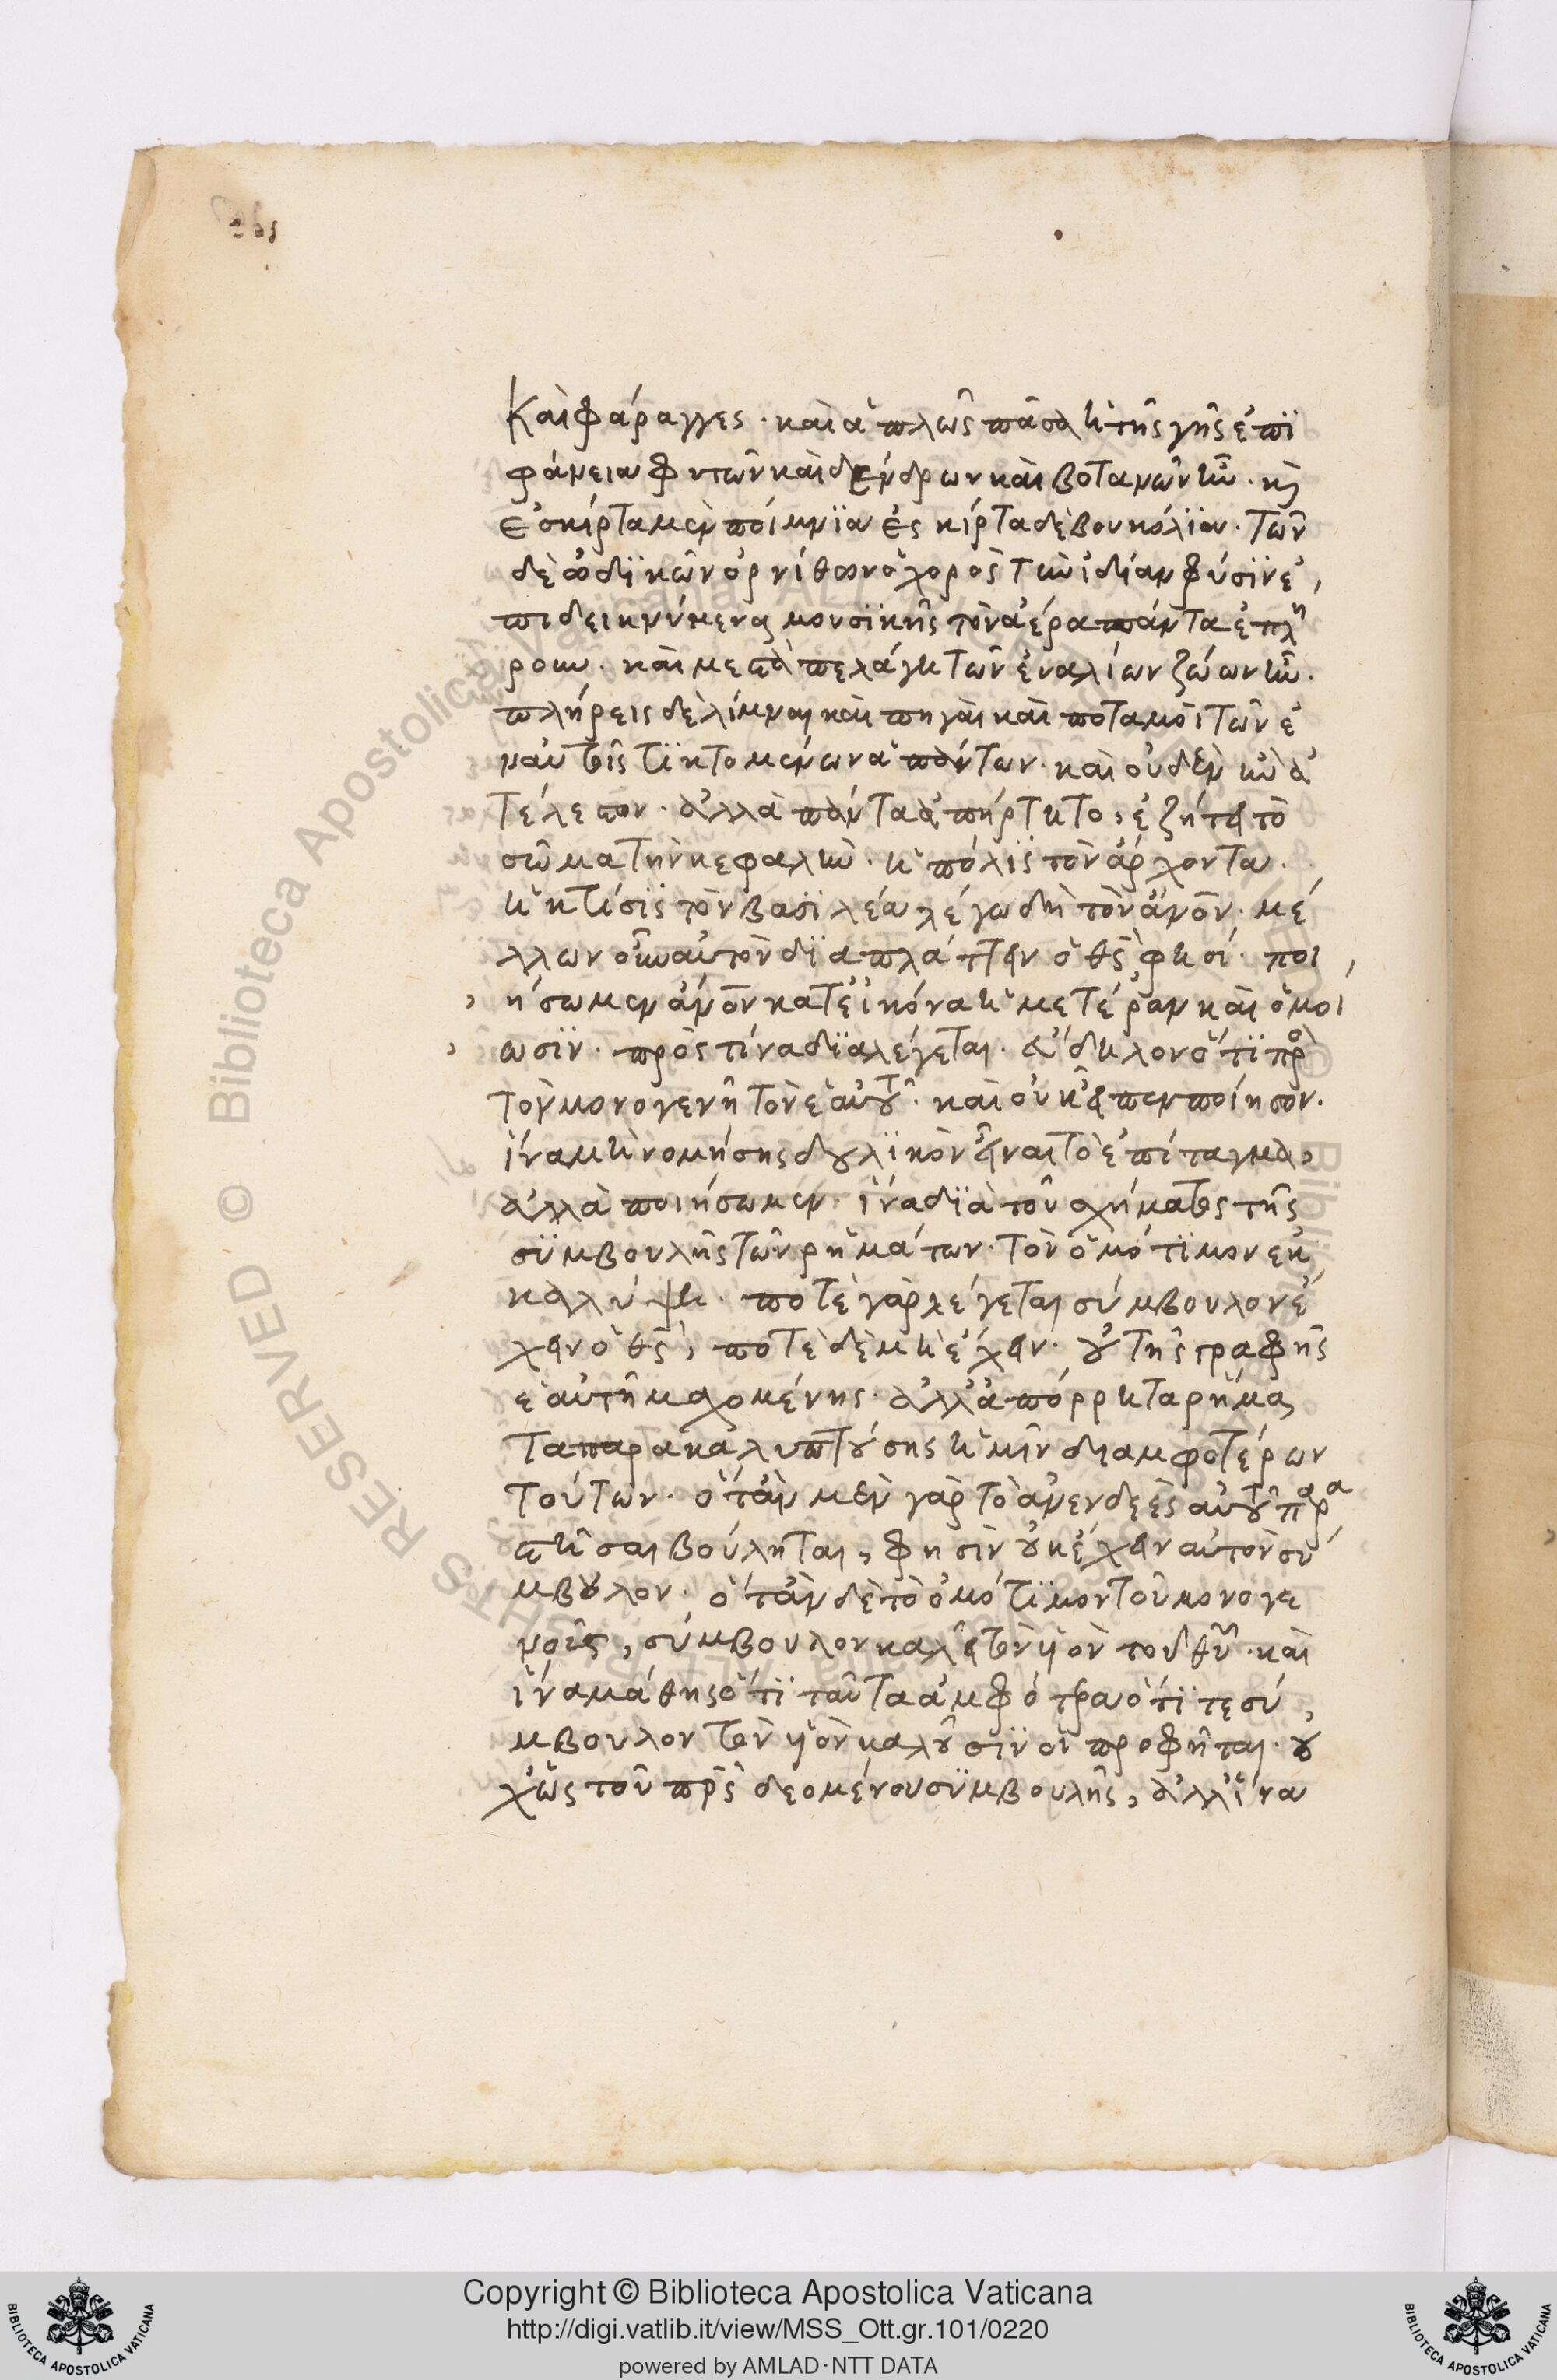 και φάραγγες· και ἁπλῶς πᾶσα ἡ τῆς γῆς ἐπϊ
φάνεια φυτῶν και δένδρων και βοτανῶν ἦν· κ(αὶ)
ἐσκίρτα μὲν ποίμνϊα ἐσκίρτα δὲ βουκόλϊα· τῶν
δὲ ὠδϊκῶν ὀρνίθων ὁ χορὸς τὴν ἰδίαν φύσϊν ἐ
πιδεικνύμενος μουσϊκῆς τὸν ἀέρα πάντα ἐπλή
ρου· και μεστὰ πελάγη τῶν ἐναλίων ζώων ἦν·
πλήρεις δὲ λίμναι και πηγαὶ και ποταμοὶ τῶν ἐ
ν αὐτοῖς τϊκτομένων ἁπάντων· και οὐδὲν ἦν ἀ
τέλεστον· ἀλλὰ πάντα ἀπήρτητο, ἐζήτει τὸ
σῶμα τὴν κεφαλὴν· ἡ πόλϊς τὸν ἄρχοντα·
ἡ κτίσϊς τὸν βασϊλέα λέγω δὴ τὸν ἄνον· μέ
λλων οὖν αὐτὸν δϊαπλάττειν ὁ θς φησί· ποι
ήσωμεν ἄνον κατ εἰκόνα ἡμετέραν και ὁμοί
ωσϊν· πρὸς τίνα δϊαλέγεται· εὔδηλον ὅτϊ πρὸς
τὸν μονογενῆ τὸν ἑαυτοῦ· και οὐκ εἶπεν ποίησον·
ἵνα μὴ νομήσης δουλϊκὸν εἶναι τὸ ἐπίταγμα,
ἀλλὰ ποιήσωμεν· ἵνα δϊὰ τοῦ σχήματος τῆς
συμβουλῆς τῶν ρημάτων· τὸν ὁμότϊμον ἐκ
καλύψη· ποτὲ γὰρ λέγεται σύμβουλον ἔ
χειν ὁ θς, ποτὲ δὲ μὴ ἔχειν· οὐ τῆς γραφῆς
ἑαυτῆ μαχομένης· ἀλλ ἀπόρρητα ρήμα
τα παρακαλυπτούσης ἡμῖν δι αμφοτέρων
τούτων· ὅταν μὲν γὰρ τὸ ἀνενδεὲς αὐτοῦ παρα
στῆσαι βούληται, φησὶν οὐκ ἔχειν αὐτὸν σύ
μβουλον· ὅταν δὲ τὸ ὁμότϊμον τοῦ μονογε
νοῦς, σύμβουλον καλεῖ τὸν υἱὸν τοῦ θυ· και
ἵνα μάθης ὅτϊ ταῦτα ἀμφότερα ὅτϊ τε σύ
μβουλον τὸν υἱὸν καλοῦσϊν οἱ προφῆται· οὐ
χ ὡς τοῦ πρς δεομένου συμβουλῆς, ἀλλ ἵνα
Copyright © Biblioteca Apostolica Vaticana
http://digi.vatlib.it/view/MSS_Ott.gr.101/0220
powered by AMLAD·NTT DATA